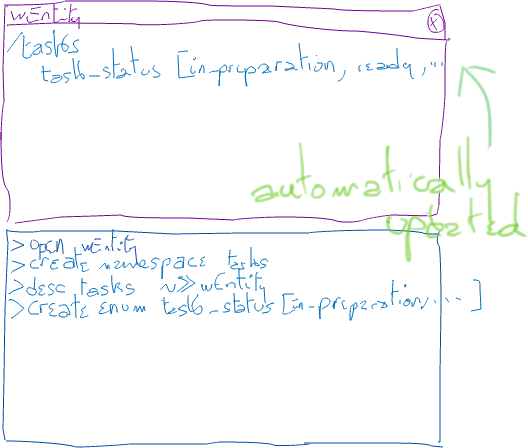 wEntity
(x)
/tasks
task-status [in-preparation, ready, ...
automatically
updated
> open wEntity
> create namespace tasks
> desc tasks v>> wEntity
> create enum task-status [in-preparation, .... ]